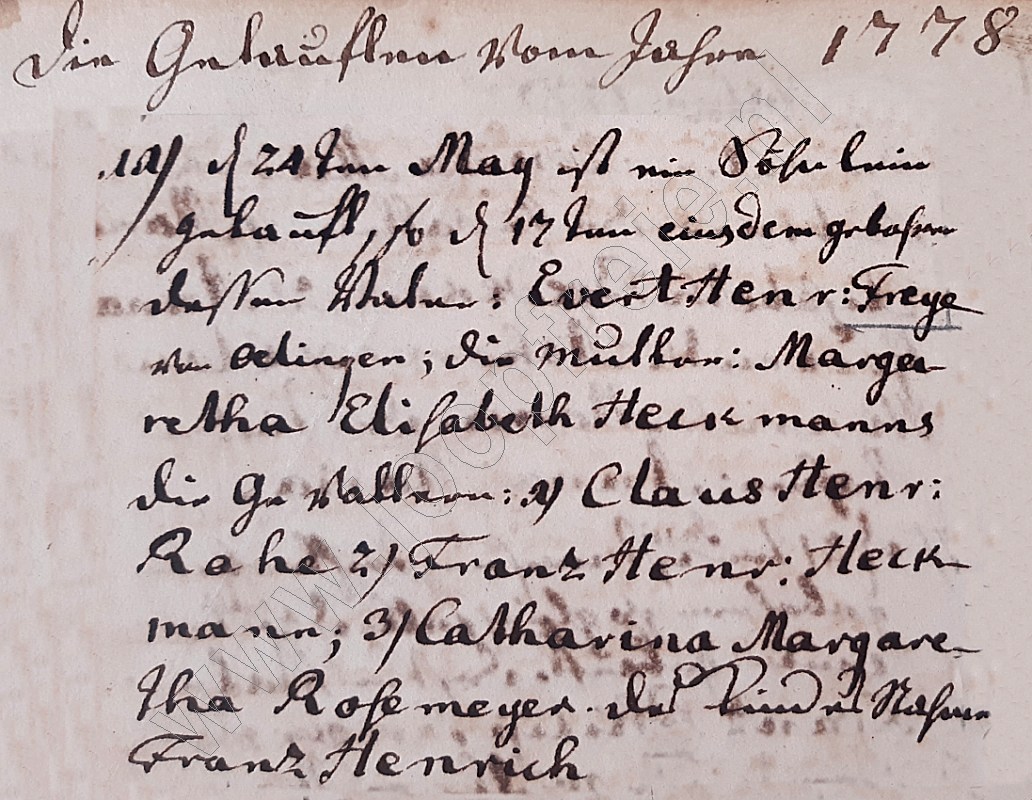 Die Getaufften vom Jahre 1778
12) d 24ten May ist ein Söhnlein
getaufft, so d 17ten eiusdem gebohren
dessen Vater: Evert Henr: Freye
von Oelingen; die Mutter: Marga-
retha Elisabeth Heckmanns
die Gevattern: 1) Claus Henr:
Rahe 2) Franz Henr: Heck-
mann; 3) Catharina Margare-
tha Rosemeyer. des Kindes Nahme
Franz Henrich
www.looptreie.nl